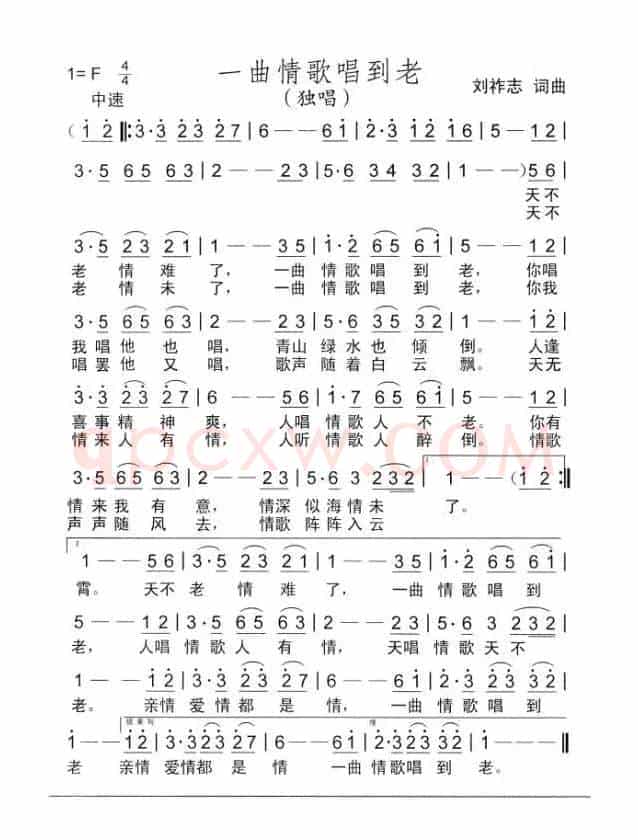 一曲情歌唱到老
（独唱）
1=F 4/4
中速
刘祚志 词曲
（1 2 ‖: 3·3 2 3 2 7 | 6 — — 6 1 | 2·2 1 2 1 6 | 5 — — 1 2 |
3·5 6 5 6 3 | 2 — — 2 3 | 5·6 3 4 3 2 | 1 — —）5 6 |
天不
天不
3·5 2 3 2 1 | 1 — — 3 5 | 1·2 6 5 6 1 | 5 — — 1 2 |
老 情 难 了， 一曲 情歌唱 到 老， 你唱
老 情 未 了， 一曲 情歌唱 到 老， 你我
3·5 6 5 6 3 | 2 — — 2 3 | 5·6 3 5 3 2 | 1 — — 1 2 |
我唱他 也 唱， 青山 绿水也 倾 倒。 人逢
唱罢他 又 唱， 歌声 随着白 云 飘。 天无
3·3 2 3 2 7 | 6 — — 6 1 | 1·7 6 5 6 1 | 5 — — 1 2 |
喜事精 神 爽， 人唱 情歌人 不 老。 你有
情来人 有 情， 人听 情歌人 醉 倒。 情歌
3·5 6 5 6 3 | 2 — — 2 3 | 5·6 3 2 2 3 2 | 1 — —（1 2 :‖
情来我 有 意， 情深 似海情未 了。
声声随 风 去， 情歌 阵阵入云
1 — — 5 6 | 3·5 2 3 2 1 | 1 — — 3 5 | 1·2 6 5 6 1 |
霄。 天不 老 情 难 了， 一曲 情歌唱 到
5 — — 1 2 | 3·5 6 5 6 3 | 2 — — 2 3 | 5·6 3 2 2 3 2 |
老， 人唱 情歌人 有 情， 天唱 情歌天 不
1 — — 1 2 | 3·3 2 3 2 7 | 6 — — 6 1 | 2·2 1 2 3 2 |
老。 亲情 爱情都 是 情， 一曲 情歌唱 到
1 — — 1 2 | 3·3 2 3 2 7 | 6 — — 6 1 | 2·2 1 2 3 2 | 1 — — — ‖
老 亲情 爱情都 是 情 一曲 情歌唱 到 老。
qpcxw.COM